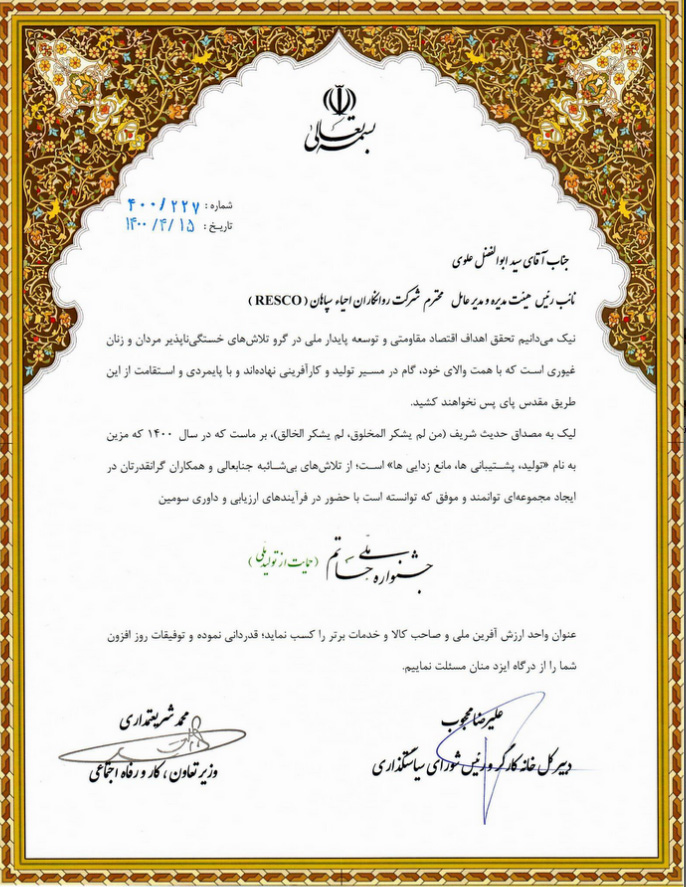 بسمه تعالی
شماره: ۴۰۰/۲۲۷
تاریخ: ۱۴۰۰/۴/۱۵
جناب آقای سید ابوالفضل علوی
نائب رئیس هیئت مدیره و مدیر عامل محترم شرکت روانکاران احیاء سپاهان (RESCO)
نیک می‌دانیم تحقق اهداف اقتصاد مقاومتی و توسعه پایدار ملی در گرو تلاش‌های خستگی‌ناپذیر مردان و زنان
غیوری است که با همت والای خود، گام در مسیر تولید و کارآفرینی نهاده‌اند و با پایمردی و استقامت از این
طریق مقدس پای پس نخواهند کشید.
لیک به مصداق حدیث شریف (من لم یشکر المخلوق، لم یشکر الخالق)، بر ماست که در سال ۱۴۰۰ که مزین
به نام «تولید، پشتیبانی ها، مانع زدایی ها» است؛ از تلاش‌های بی‌شائبه جنابعالی و همکاران گرانقدرتان در
ایجاد مجموعه‌ای توانمند و موفق که توانسته است با حضور در فرآیندهای ارزیابی و داوری سومین
جشنواره ملی حاتم (حمایت از تولید ملی)
عنوان واحد ارزش آفرین ملی و صاحب کالا و خدمات برتر را کسب نماید؛ قدردانی نموده و توفیقات روز افزون
شما را از درگاه ایزد منان مسئلت نماییم.
علیرضا محجوب
دبیر کل خانه کارگر و رئیس شورای سیاستگذاری
محمد شریعتمداری
وزیر تعاون، کار و رفاه اجتماعی